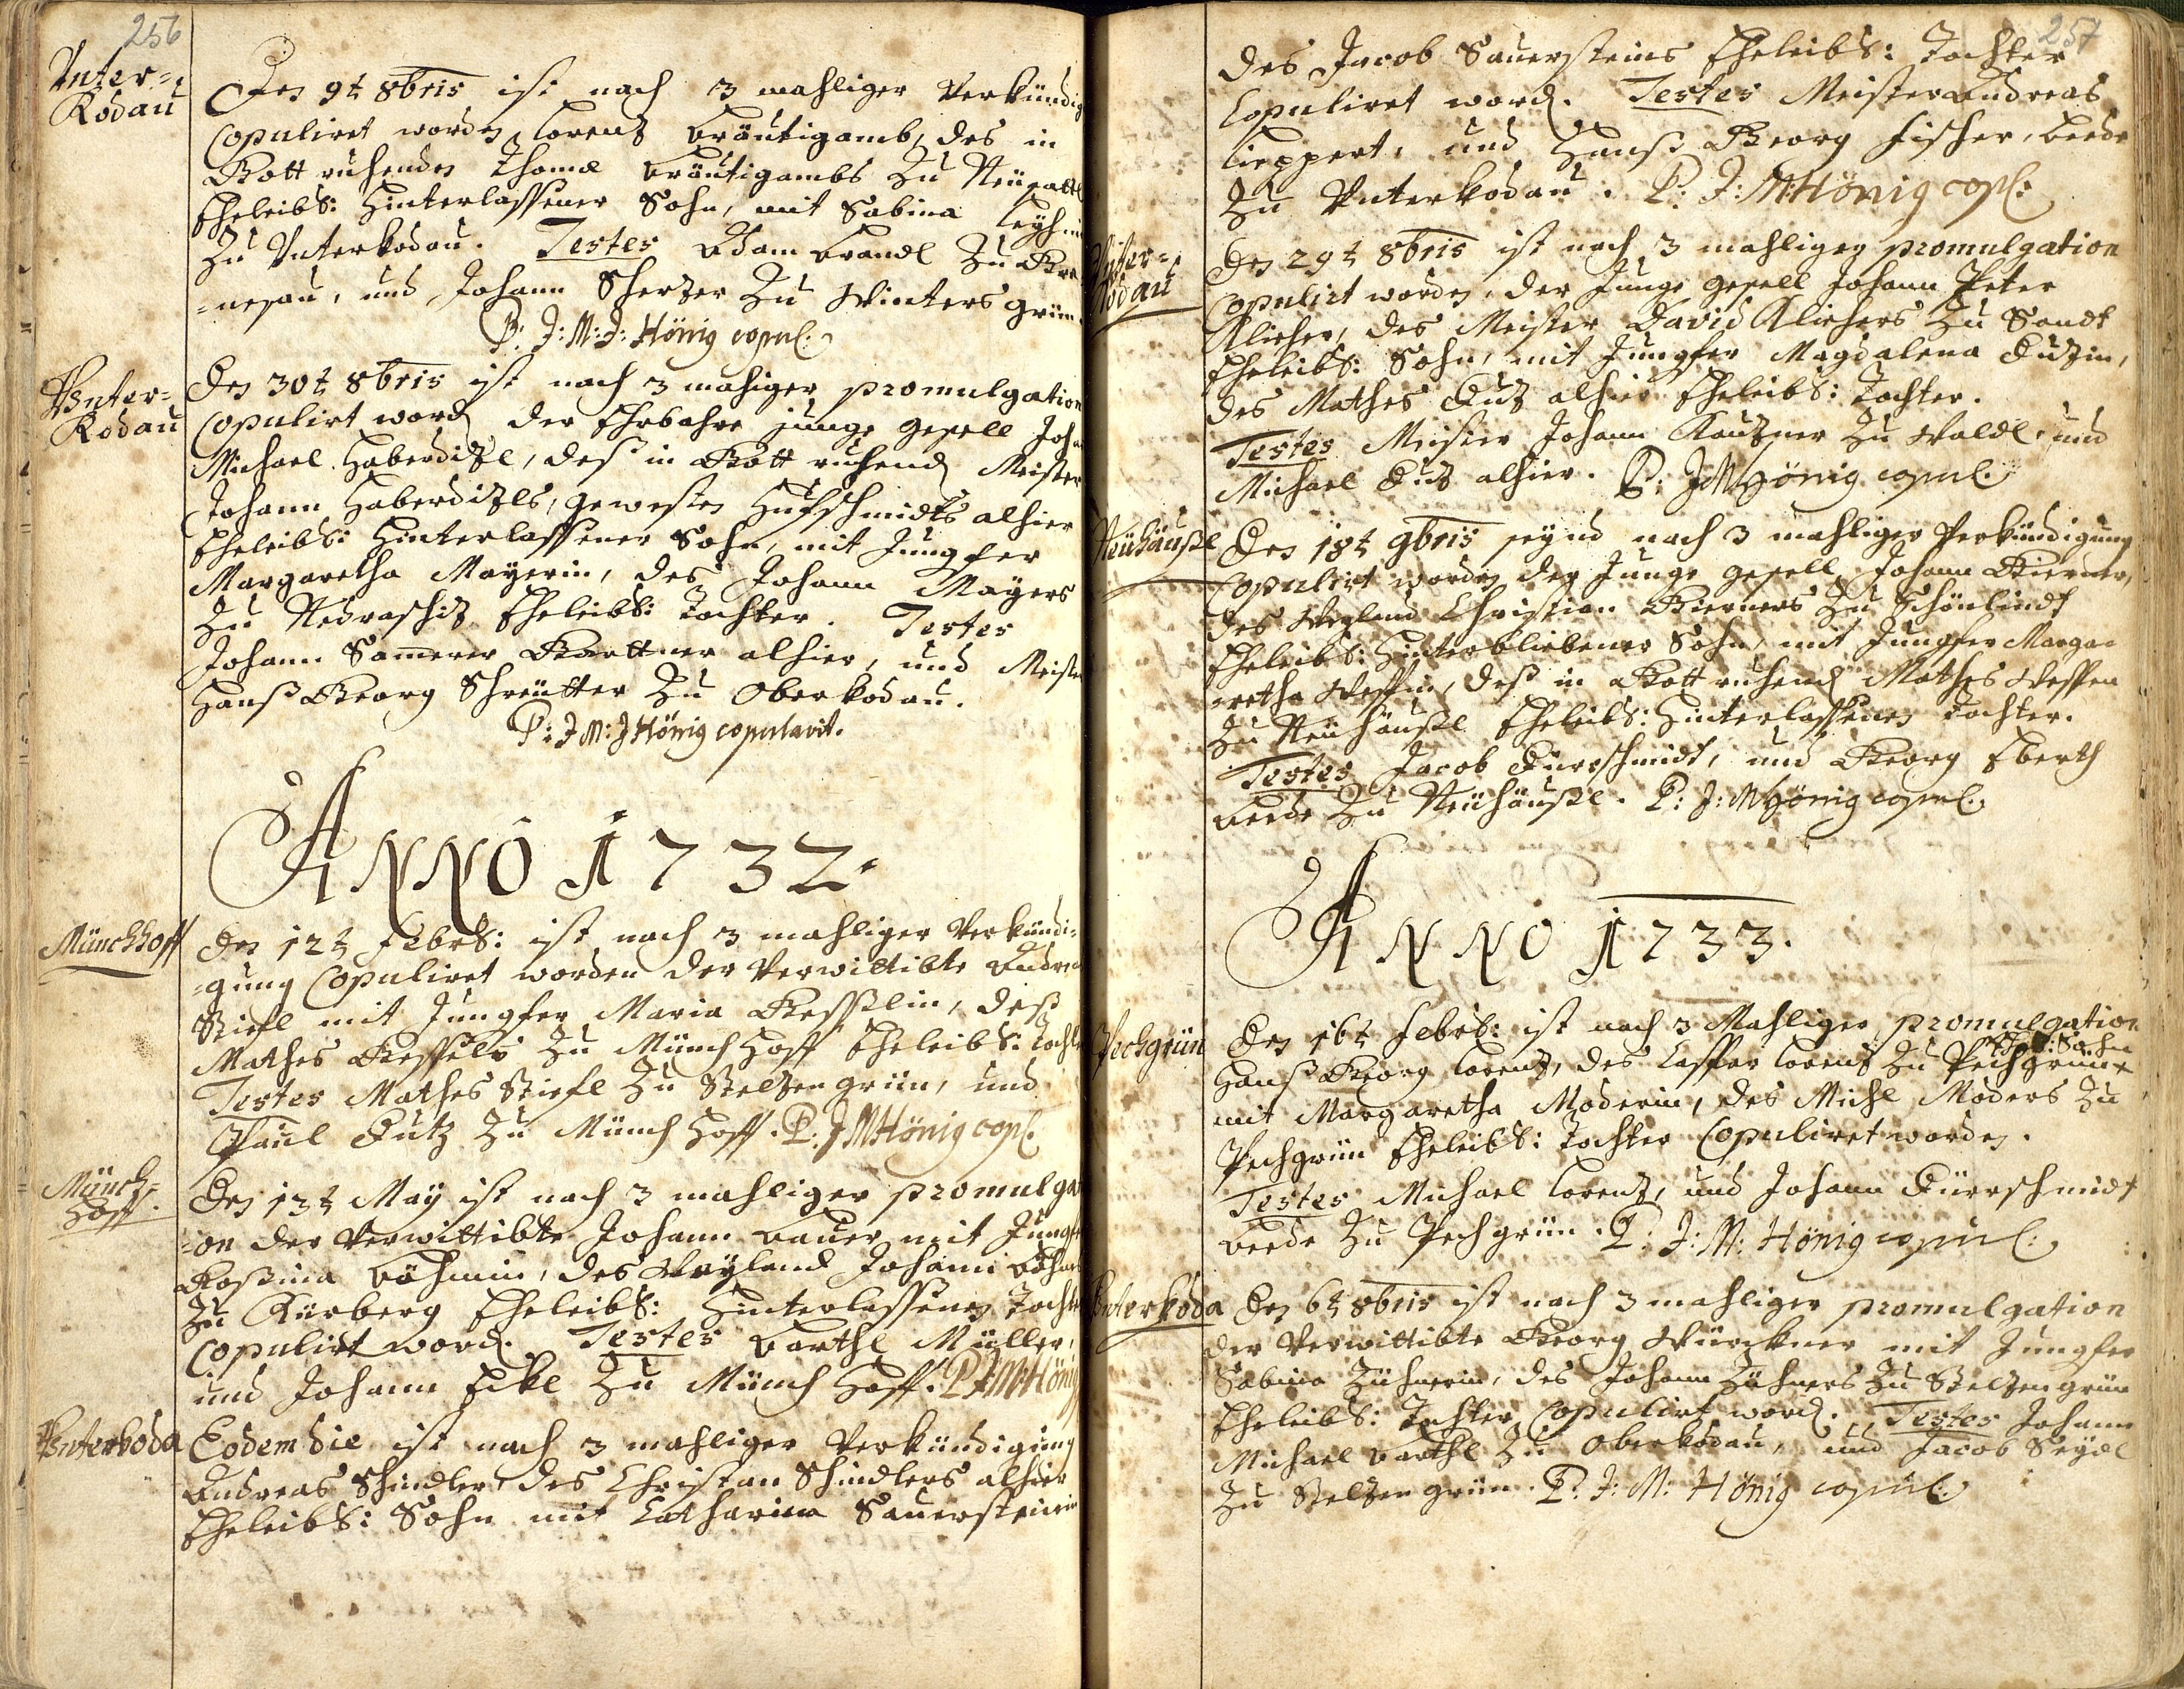 256
Unter=
Kodau
Den 9t 8bris ist nach 3 mahliger Verkündig
Copuliret worden Lorentz Bräutigamb, des in
Gott ruhenden Thomæ Bräutigambs zu Neusattl
Eheleibl: hinterlassener Sohn, mit Sabina
zu Unterkodau. Testes Adam Brandl zu
=nesau, und Johann Scherzer zu Wintersgrün.
P: J: M: J: Hönig copul:
Unter=
Kodau
Den 30t 8bris ist nach 3 mahliger promulgation
Copulirt word der Ehrbahre junge gesell Joha
Michael Haberdizl, deß in Gott ruhend Meister
Johann Haberdizls, gewesten Hufschmidts alhier
Eheleibl: hinterlassener Sohn, mit Jungfer
Margaretha Mayerin, des Johann Mayers
zu Nedraschiz Eheleibl: Tochter. Testes
Johann Samerer Gärttner alhier, und Meister
Hanß Georg Schreütter zu Oberkodau.
P: J M: J Hönig copulavit.
ANNO 1732.
Münchhoff
Den 12t Febrs: ist nach 3 mahliger Verkündi=
=gung Copuliret worden der Verwittibte Andrea
Stiefl mit Jungfer Maria Gesslin, deß
Mathes Gessels zu Münchhoff Eheleibl: Tochter
Testes Mathes Stiefl zu Steltzengrün, und
Paul Dutz zu Münchhoff. P. J M Hönig copl.
Münch=
hoff.
Den 13t May ist nach 3 mahliger promulgat
=on der Verwittibte Johann Bauer mit Jungfer
Rosina Böhmin, des Weyland Johann Böhms
zu Dürberg Eheleibl: hinterlassenen Tochter
Copulirt word. Testes Barthl Müller,
und Johann Eckl zu Münchhoff. P J M Hönig
Unterkoda
Eodem die ist nach 3 mahliger Verkündigung
Andreas Schindler des Christian Schindlers alhier
Eheleibl: Sohn mit Catharina Sauersteinin
257
des Jacob Sauersteins Eheleibl: Tochter
Copuliret word. Testes Meister Andreas
Lieppert, und Hanß Georg Fischer, beede
zu Unterkodau. P: J: M: Hönig copl:
Unter=
Kodau
Den 29t 8bris ist nach 3 mahligen promulgation
Copulirt worden, der Junge gesell Johann Peter
des Meister David zu Sandt
Eheleibl: Sohn, mit Jungfer Magdalena Dutzin,
des Mathes Dutz alhier Eheleibl: Tochter.
Testes Meister Johann Kautzner zu Waldl, und
Michael Dutz alhier. P: J M Hönig copul.
Neühäußl
Den 18t 9bris seynd nach 3 mahliger Verkündigung
Copulirt worden der Junge gesell Johann
des Weyland Christian zu Schönlindt
Eheleibl: Hinterbliebener Sohn, mit Jungfer Marga=
=retha deß in Gott ruhend Mathes
zu Neühäußl Eheleibl: hinterlassenen Tochter.
Testes Jacob Dürrschmidt, und Georg Eberth
beede zu Neühäußl. P: J: M Hönig copul.
ANNO 1733.
Pechgrün
Den 16t Febrs: ist nach 3 Mahliger promulgation
Hanß Georg Lorentz, des Caspar Lorentz zu Pechgrün Sohn
mit Margaretha Moderin, des Michl Moders zu
Pechgrün Eheleibl: Tochter Copuliret worden.
Testes Michael Lorentz, und Johann Dürrschmidt
beede zu Pechgrün. P: J: M: Hönig copul:
Unterkoda
Den 6t 8bris ist nach 3 mahliger promulgation
der Verwittibte Georg Würckner mit Jungfer
Sabina Zühnerin, des Johann Zühners zu Steltzengrün
Eheleibl: Tochter Copulirt word. Testes Johann
Michael Barthl zu Oberkodau, und Jacob Seydl
zu Steltzengrün. P: J: M: Hönig copul: